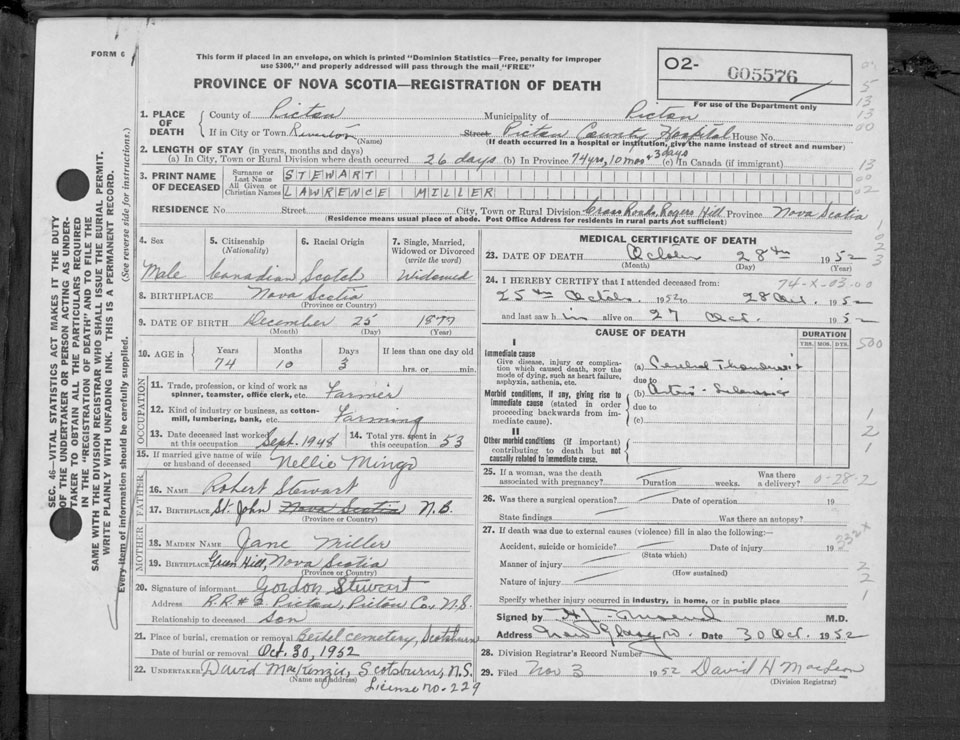 FORM 6
This form if placed in an envelope, on which is printed "Dominion Statistics—Free, penalty for improper
use $300," and properly addressed will pass through the mail "FREE"
PROVINCE OF NOVA SCOTIA—REGISTRATION OF DEATH
02- 005576
For use of the Department only
SEC. 46—VITAL STATISTICS ACT MAKES IT THE DUTY
OF THE UNDERTAKER OR PERSON ACTING AS UNDER-
TAKER TO OBTAIN ALL THE PARTICULARS REQUIRED
IN THE "REGISTRATION OF DEATH" AND TO FILE THE
SAME WITH THE DIVISION REGISTRAR WHO SHALL ISSUE THE BURIAL PERMIT.
WRITE PLAINLY WITH UNFADING INK. THIS IS A PERMANENT RECORD.
Every item of information should be carefully supplied. (See reverse side for instructions.)
1. PLACE OF DEATH
County of Pictou Municipality of Pictou
If in City or Town Riverton Street Pictou County Hospital House No.
(Name) (If death occurred in a hospital or institution, give the name instead of street and number)
2. LENGTH OF STAY (in years, months and days)
(a) In City, Town or Rural Division where death occurred 26 days (b) In Province 74 yrs, 10 mos + 3 days (c) In Canada (if immigrant)
3. PRINT NAME OF DECEASED
Surname or Last Name STEWART
All Given or Christian Names LAWRENCE MILLER
RESIDENCE No. Street City, Town or Rural Division Cross Roads, Rogers Hill Province Nova Scotia
(Residence means usual place of abode. Post Office Address for residents in rural parts not sufficient)
4. Sex 5. Citizenship (Nationality) 6. Racial Origin 7. Single, Married, Widowed or Divorced (write the word)
Male Canadian Scotch Widowed
8. BIRTHPLACE Nova Scotia
(Province or Country)
9. DATE OF BIRTH December 25 1877
(Month) (Day) (Year)
10. AGE in Years Months Days If less than one day old
74 10 3 hrs. or min.
OCCUPATION
11. Trade, profession, or kind of work as spinner, teamster, office clerk, etc. Farmer
12. Kind of industry or business, as cotton-mill, lumbering, bank, etc. Farming
13. Date deceased last worked at this occupation Sept. 1948 14. Total yrs. spent in this occupation 53
15. If married give name of wife or husband of deceased Nellie Mingo
FATHER
16. NAME Robert Stewart
17. BIRTHPLACE St. John Nova Scotia N.B.
(Province or Country)
MOTHER
18. MAIDEN NAME Jane Miller
19. BIRTHPLACE Green Hill, Nova Scotia
(Province or Country)
20. Signature of informant Gordon Stewart
Address R.R. # 2 Pictou, Pictou Co. N.S.
Relationship to deceased Son
21. Place of burial, cremation or removal Bethel cemetery, Scotsburn
Date of burial or removal Oct. 30, 1952
22. UNDERTAKER David MacKenzie, Scotsburn, N.S.
(Name and address) License no. 229
MEDICAL CERTIFICATE OF DEATH
23. DATE OF DEATH October 28th 1952
(Month) (Day) (Year)
74-X-03-00
24. I HEREBY CERTIFY that I attended deceased from:
25th October 1952 to 28 Oct. 1952
and last saw him alive on 27 Oct. 1952
CAUSE OF DEATH DURATION
YRS. MOS. DYS.
I
Immediate cause
Give disease, injury or complication which caused death, not the mode of dying, such as heart failure, asphyxia, asthenia, etc.
(a) Cerebral Thrombosis
due to
Morbid conditions, if any, giving rise to immediate cause (stated in order proceeding backwards from immediate cause).
(b) Arterio-Sclerosis
due to
(c)
II
Other morbid conditions (if important) contributing to death but not causally related to immediate cause.
25. If a woman, was the death associated with pregnancy? Duration weeks. Was there a delivery? 0-28-2
26. Was there a surgical operation? Date of operation 19
State findings Was there an autopsy?
27. If death was due to external causes (violence) fill in also the following:—
Accident, suicide or homicide? Date of injury 19
(State which)
332X
Manner of injury
(How sustained)
Nature of injury
Specify whether injury occurred in industry, in home, or in public place
Signed by M.D.
Address New Glasgow Date 30 Oct. 1952
28. Division Registrar's Record Number
29. Filed Nov 3 1952 David H MacLean
(Division Registrar)